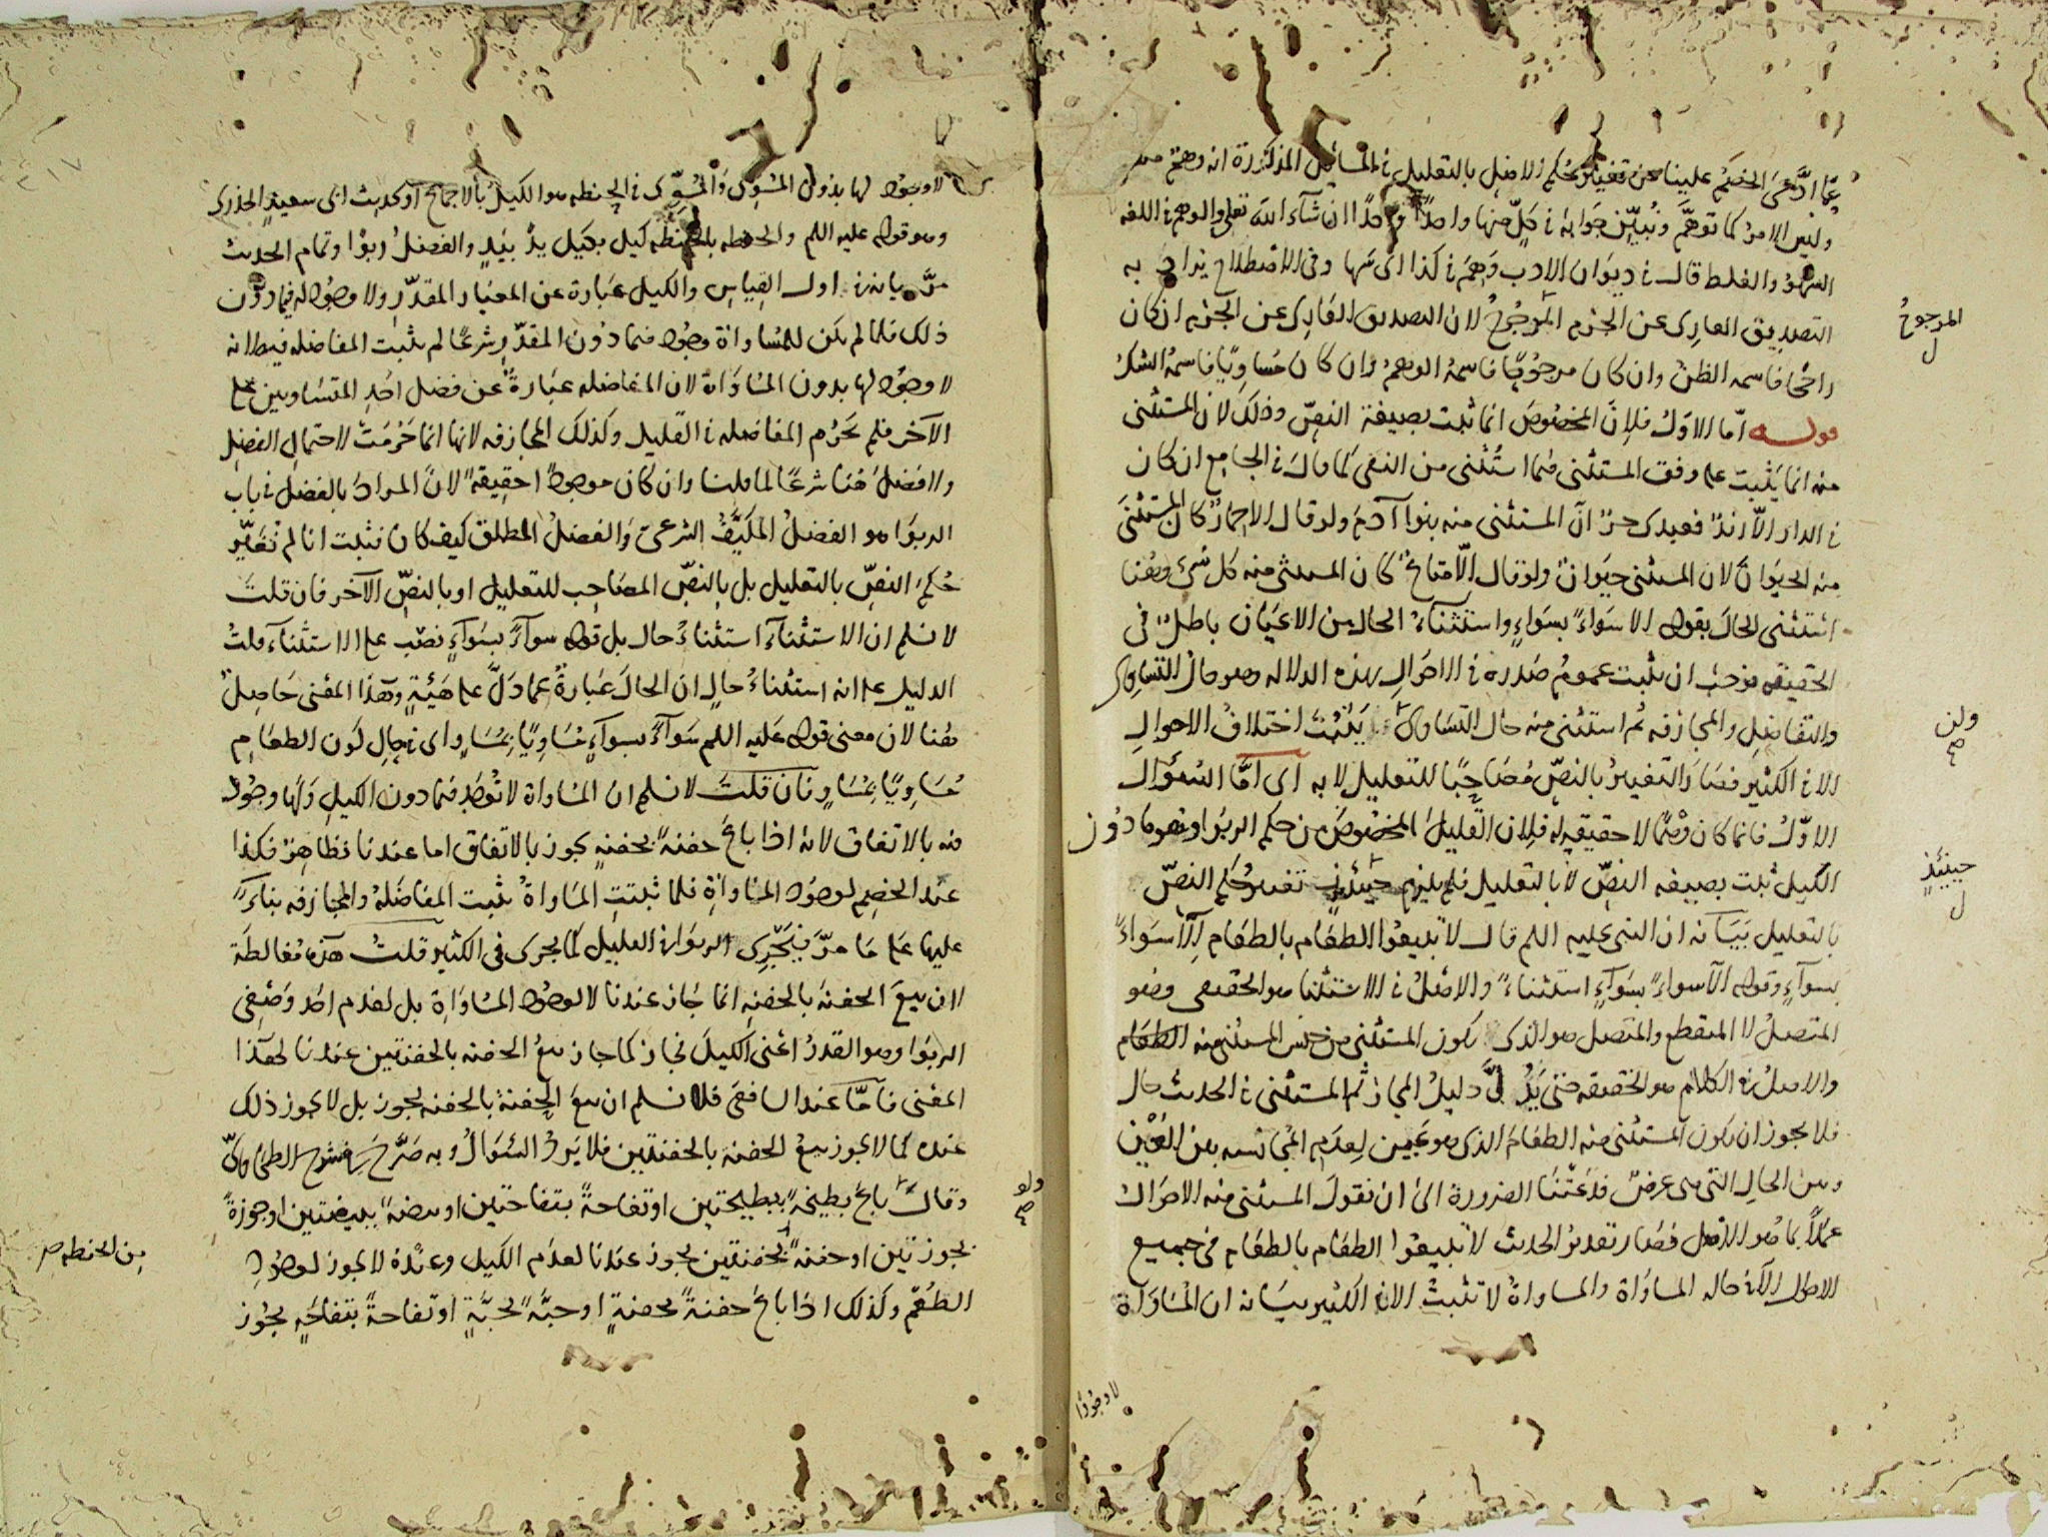 عمّا ادَّعى الخصم علينا من تغيير حكم الاصل بالتعليل في المسائل المذكورة انه وهم
وليس الامر كما توهّم ونُبيّن جوابه في كلٍّ منها واحدًا واحدًا ان شآء الله تعلى والوهم في اللغه
السهو والغلط قال في ديوان الادب وَهِمَ في كذا اى سها وفى الاصطلاح يراد به
التصديق العارى عن الجزم المرجوحُ لان التصديق العارى عن الجزم ان كان
راجحًا فاسمه الظن وان كان مرجوحًا فاسمهُ الوهمُ وان كان مُساوِيًا فاسمهُ الشكُّ
قوله امّا الاوّلُ فلانَّ المخصُوصَ انما ثبت بصيغة النصّ وذلك لان المستثنى
منه انما يَثْبت على وفق المستثنى فيما استُثنى من النفى كما قال في الجامع ان كان
في الدار الّا زيدٌ فعبدى حرٌّ انّ المستثنى منه بنوا آدمَ ولو قال الا حمارٌ كان المستثنَى
منه الحيَوانَ لان المستثنى حيَوانٌ ولو قال الّا متاعٌ كان المستثنى منه كل شئ وهُنا
استثنى الحالَ بقوله الا سَوَاءً بسوَاءٍ واستثناءُ الحال من الاعيان باطلٌ في
الحقيقه فوجَبَ ان يثبت عمومُ صَدره في الاحوالِ بهذه الدلاله وهو حال التساوى
والتفاضل والمجازفه ثم استثنى منه حال التساوى يَثْبُتَ اختلافُ الاحوالِ
الا في الكثير فصار التغييرُ بالنصّ مُصَاحِبًا للتعليل لا به اى امّا السُؤال
الاوّلُ فانما كان وَهْمًا لا حقيقه له فلان القليلَ المخصوصَ من حكم الربوا وهو ما دُون
الكيل ثبت بصيغه النصّ لا بالتعليل فلم يلزم حينئذٍ تغيير حُكم النصّ
بالتعليل بَيَانه ان النبى عليه اللم قال لا تبيعُوا الطعَام بالطعَام اِلّا سَواءً
بسواءٍ وقوله الّا سواءً بسَواءٍ استثناءٌ والاصلُ في الاستثنا هو الحقيقى وهو
المتصلُ لا المنقطع والمتصل هو الذى يكون المستثنى من جنس المستثنى منه الطعام
والاصلُ في الكلام هو الحقيقه حتى يَدُلَّ دليلُ المجاز ثم المستثنى في الحديث حال
فلا يجوز ان يكون المستثنى منه الطعَامَ الذى هو عَين لِعدمِ المجانسه بين العَيْن
وبين الحالِ التى هى عرضٌ فدعَتْنا الضرورة الى ان نقولَ المستثنى منه الاحوال
عملًا بما هُو الاصل فصَار تقديرُ الحديث لا تبيعُوا الطعَام بالطعَام في جميع
الاحوال الّا في حاله المساوَاة والمساواةُ لا تثبتُ الا في الكثير بيَانه ان المُسَاوَاة
لا وجُودَ
المرجوحُ
ل
ولن
صح
حينئذٍ
ل
لا وجُودَ لها بدُونِ المُسَوِى وَالمُسَوِّى في الحنطه هو الكيلُ بالاجماع او لحديث ابى سعيدٍ الخذرى
وهو قوله عليه اللم والحنطه بالحنطه كيل بكيل يدٌ بيَدٍ والفضلُ ربوًا وتمام الحديث
مرَّ بيانه في اول القِياسِ والكيل عبَارة عن المعيَار المقدّر ولا وجُود له فيما دون
ذلك فلما لم يكن للمُسَاواة وجُود فيما دُون المقدّر شرعًا لم يثبت المفاضله فيه لانه
لا وجُود لها بدون المسَاوَاة لان المفاضله عبَارةٌ عن فضل احَدِ المتسَاويين على
الآخر فلم تحرُم المفاضله في القليل وكذلك المجازفه لانها انما حَرُمَتْ لاحتمالِ الفضلِ
ولا فضلَ هُنا شرعًا لما قلنا وان كان موجودًا حقيقةً لانّ المرادَ بالفضل في باب
الربوَا هو الفضلُ المكيَّفُ الشرعىّ وَالفضلُ المطلق كيف كان فثبت انا لم نُغيّر
حُكمَ النصِّ بالتعليل بل بالنصِّ المصَاحِب للتعليل او بالنصّ الآخر فان قلتَ
لا نسلم ان الاستثنآءَ استثناءُ حال بل قوله سوآءً بسَوآءٍ نصب على الاستثنآء قلتُ
الدليل على انه استثناءُ حالٍ ان الحالَ عبَارةٌ عمّا دَلَّ على هَيْئةٍ وهَذا المعْنى حَاصِلٌ
هُنا لان معنى قوله عَليه اللم سَوآءً بسوآءٍ مُسَاوِيًا بمُسَاوٍ اى في حالِ كَون الطعَامِ
مُسَاوِيًا بمُسَاوٍ فان قلتَ لا نسلم ان المسَاواة لا تُوجَدِ فيما دون الكيلِ وَلَها وجُودٌ
فيه بالاتفاق لانه اذا باعَ حفنةً بحفنةٍ يجوز بالاتفاق اما عندنا فظاهِرٌ فكذا
عند الخصم لوجُود المسَاواةِ فلما ثبتتِ المسَاواةُ يثبت المفَاضَلهُ والمجازفه بناءً
عليها على مَا مرَّ فَيَجْرِى الربوَا في القليل كما يجرى في الكثير قلتُ هَذه مُغالطَة
لان بيعَ الحفنةَ بالحفنه انما جَاز عندنا لا لوجُود المسَاوَاةِ بل لعدم احَد وَصْفِى
الربَوا وهو القدرُ اعْنى الكيلَ فجاز كما جاز بيعُ الحفنه بالحفنتين عندنا لهذا
المعْنى فامّا عند الشافعى فلا نسلم ان بيعَ الحفنةَ بالحفنه يجوز بل لا يجوز ذلك
عنده كما لا يجوز بيعُ الحفنه بالحفنتين فلا يَرِدُ السُؤَالُ وبه صَرَّحَ
وقال باعَ بطيخةً ببطيختين او تفاحةً بتفاحتين او بيضةً ببيضتين او جوزةً
بجوزتين او حفنةً بحفنتين يجوز عندنا لعدَم الكيل وعنْدهُ لا يجوز لوجُودِ
الطُعْم وكذلك اذا باعَ حفنةً بحفنةٍ او حبَّةً بحبَّةٍ او تفاحةً بتفاحَةٍ يجُوز
ولو
صح
من الحنطه صح